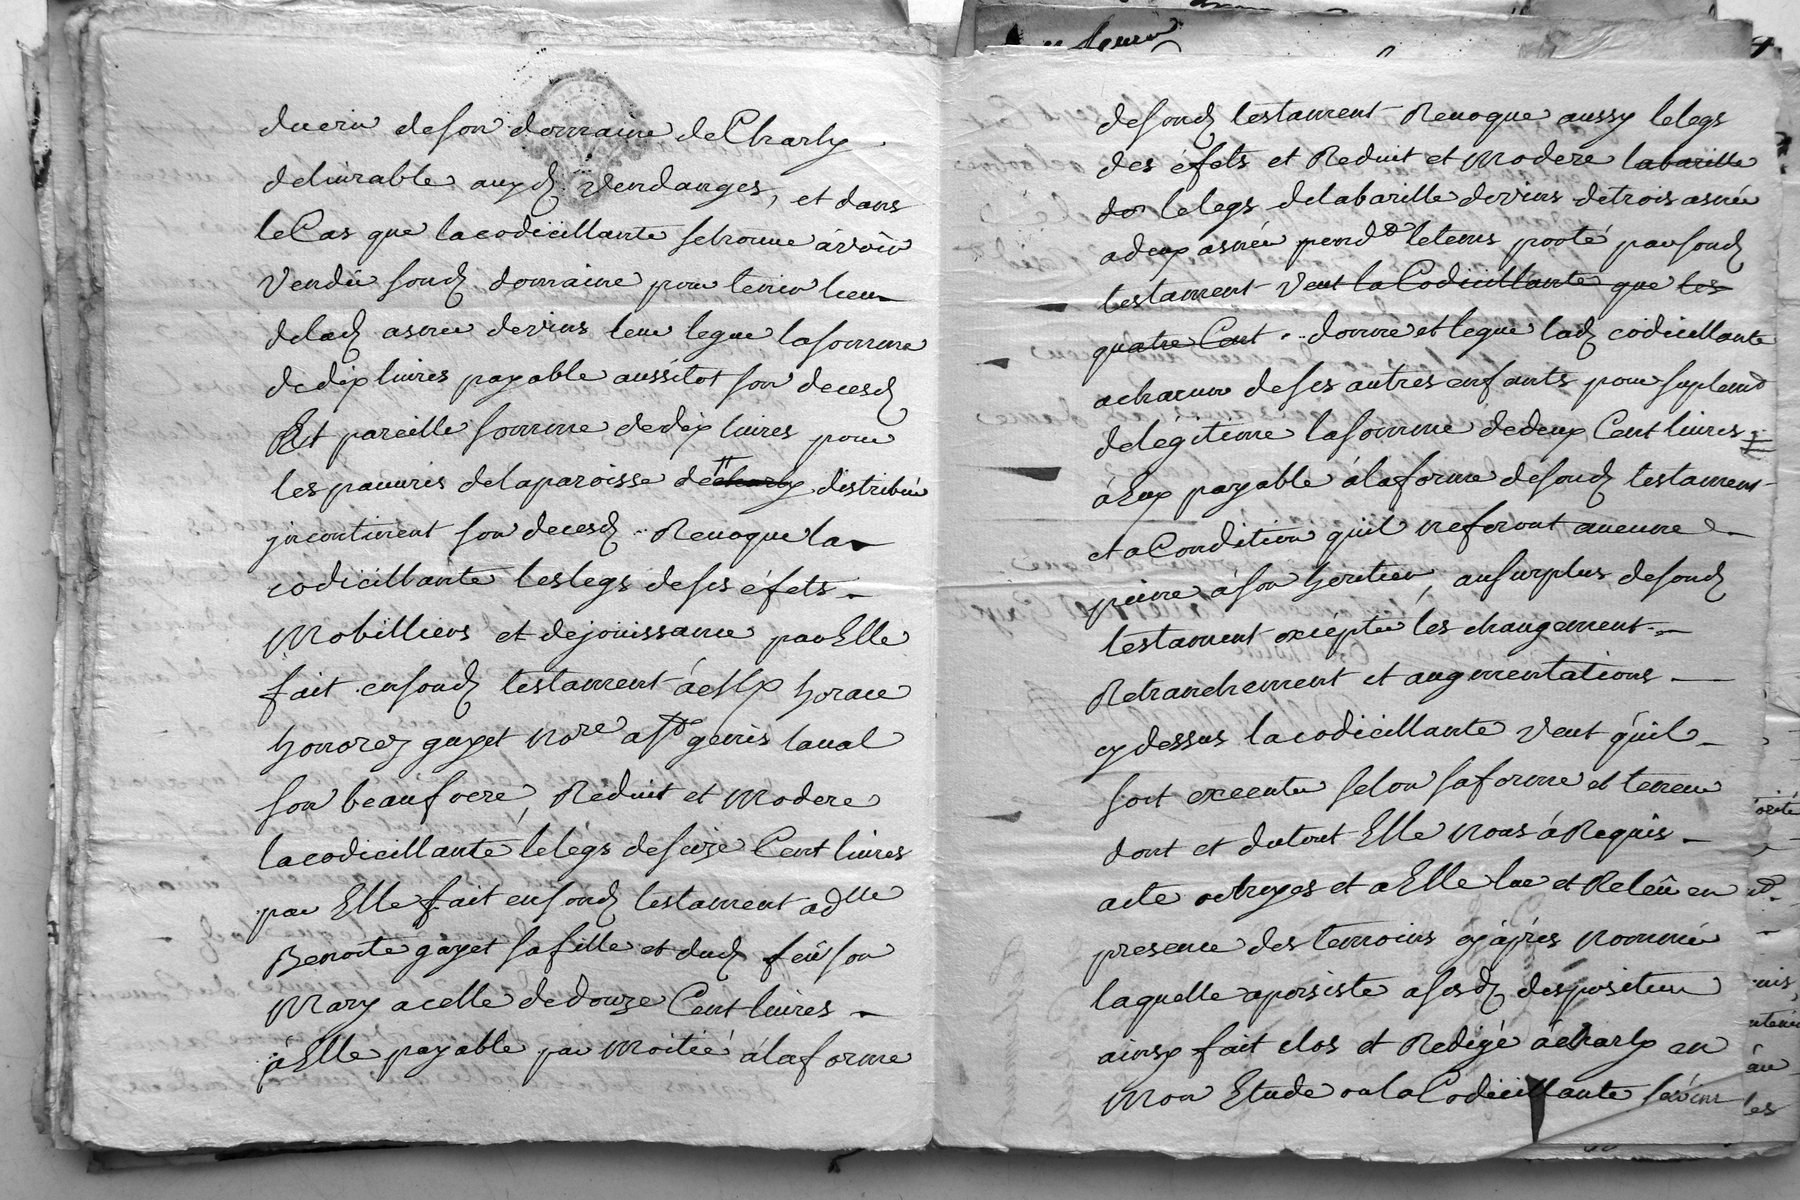 du cru de son domaine de Charly
delivrable auxd vendanges, et dans
le Cas que la codicillante se trouve avoir
Vendu sond domaine pour tenir lieu
de lad asnée de vins leur legue la somme
de dix livres payable aussitot son decesd
Et pareille somme de dix livres pour
les pauvres de la paroisse de charly distribuée
jncontinent son decesd .. Revoque la
codicillante les legs de ses éfets
Mobilliers et de joüissance par Elle
fait en sond testament á Horace
honoré gayet No.re ap genis laval
son beaufrere, Reduit et Modere
la codicillante le legs de seize Cent livres
par Elle fait en sond testament a dlle
Benoite gayet sa fille et dud feû son
Mary a celle de douze Cent livres
á Elle payable par Moitié á la forme
de sond testament Revoque aussy le legs
des éfets et Reduit et Modere la barille
de le legs de la barille de vins de trois asnée
a deux asnée pend.t le tems porté par sond
testament Veut la Codicillante que les
quatre Cent .. donne et legue lad codicillante
a chacun de ses autres enfants pour suplem.t
de légitime la somme de deux Cent livres
á Eux payable á la forme de sond testament
et a Condition qu'il ne feront aucune
peine á son heritier, au surplus de sond
testament exépté les changement
Retranchement et augmentations
cy dessus la codicillante Veut quil
soit executé selon sa forme et teneur
dont et du tout Elle Nous á Requis
acte octroyes et a Elle lue et Releüe en
presence des temoins cy áprés Nommé
laquelle a persisté a sesd dispositions
ainsy fait clos et Redigé á charly en
Mon Etude ou la Codicillante